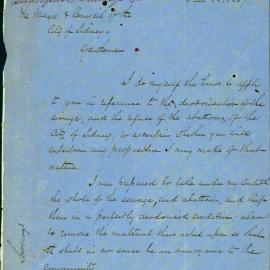 The Mayor & Council of the
City of Sidney.
Gentlemen
I do myself the honor to apply
to you in reference to the deodorisation of the
sewage, and the refuse of the abattoirs, of the
City of Sidney, to ascertain whether you will
entertain any proposition I may make of that
nature.
I am prepared to take under my control
the whole of the sewage, and abattoirs, and keep
them in a perfectly deodorised condition, also
to remove the material thus acted upon so that
it shall in no sense be an annoyance to the
Community